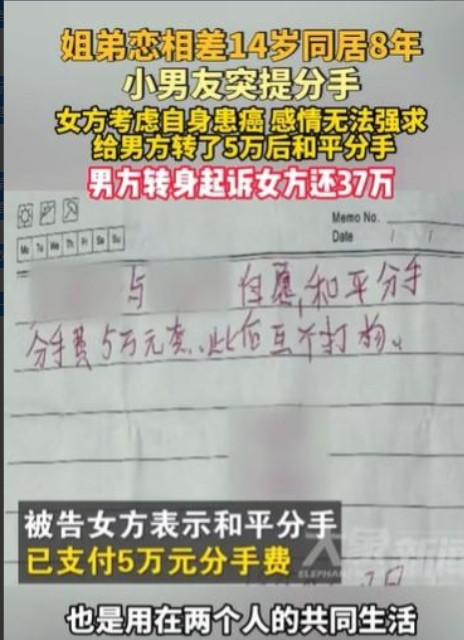 姐弟恋相差14岁同居8年
小男友突提分手
女方考虑自身患癌 感情无法强求
给男方转了5万后和平分手
男方转身起诉女方还37万
Memo No.
Date / /
Mo Tu We Th Fr Sa Su
与 自愿,和平分手
分手费5万元衷、此后互不打扰。
被告女方表示和平分手
已支付5万元分手费
大象新闻
ELEPHANT
7日
也是用在两个人的共同生活